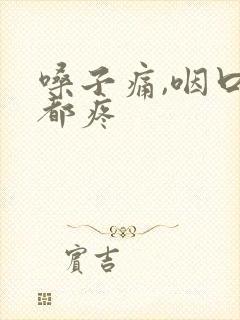 嗓子痛,咽口
都疼
賓吉